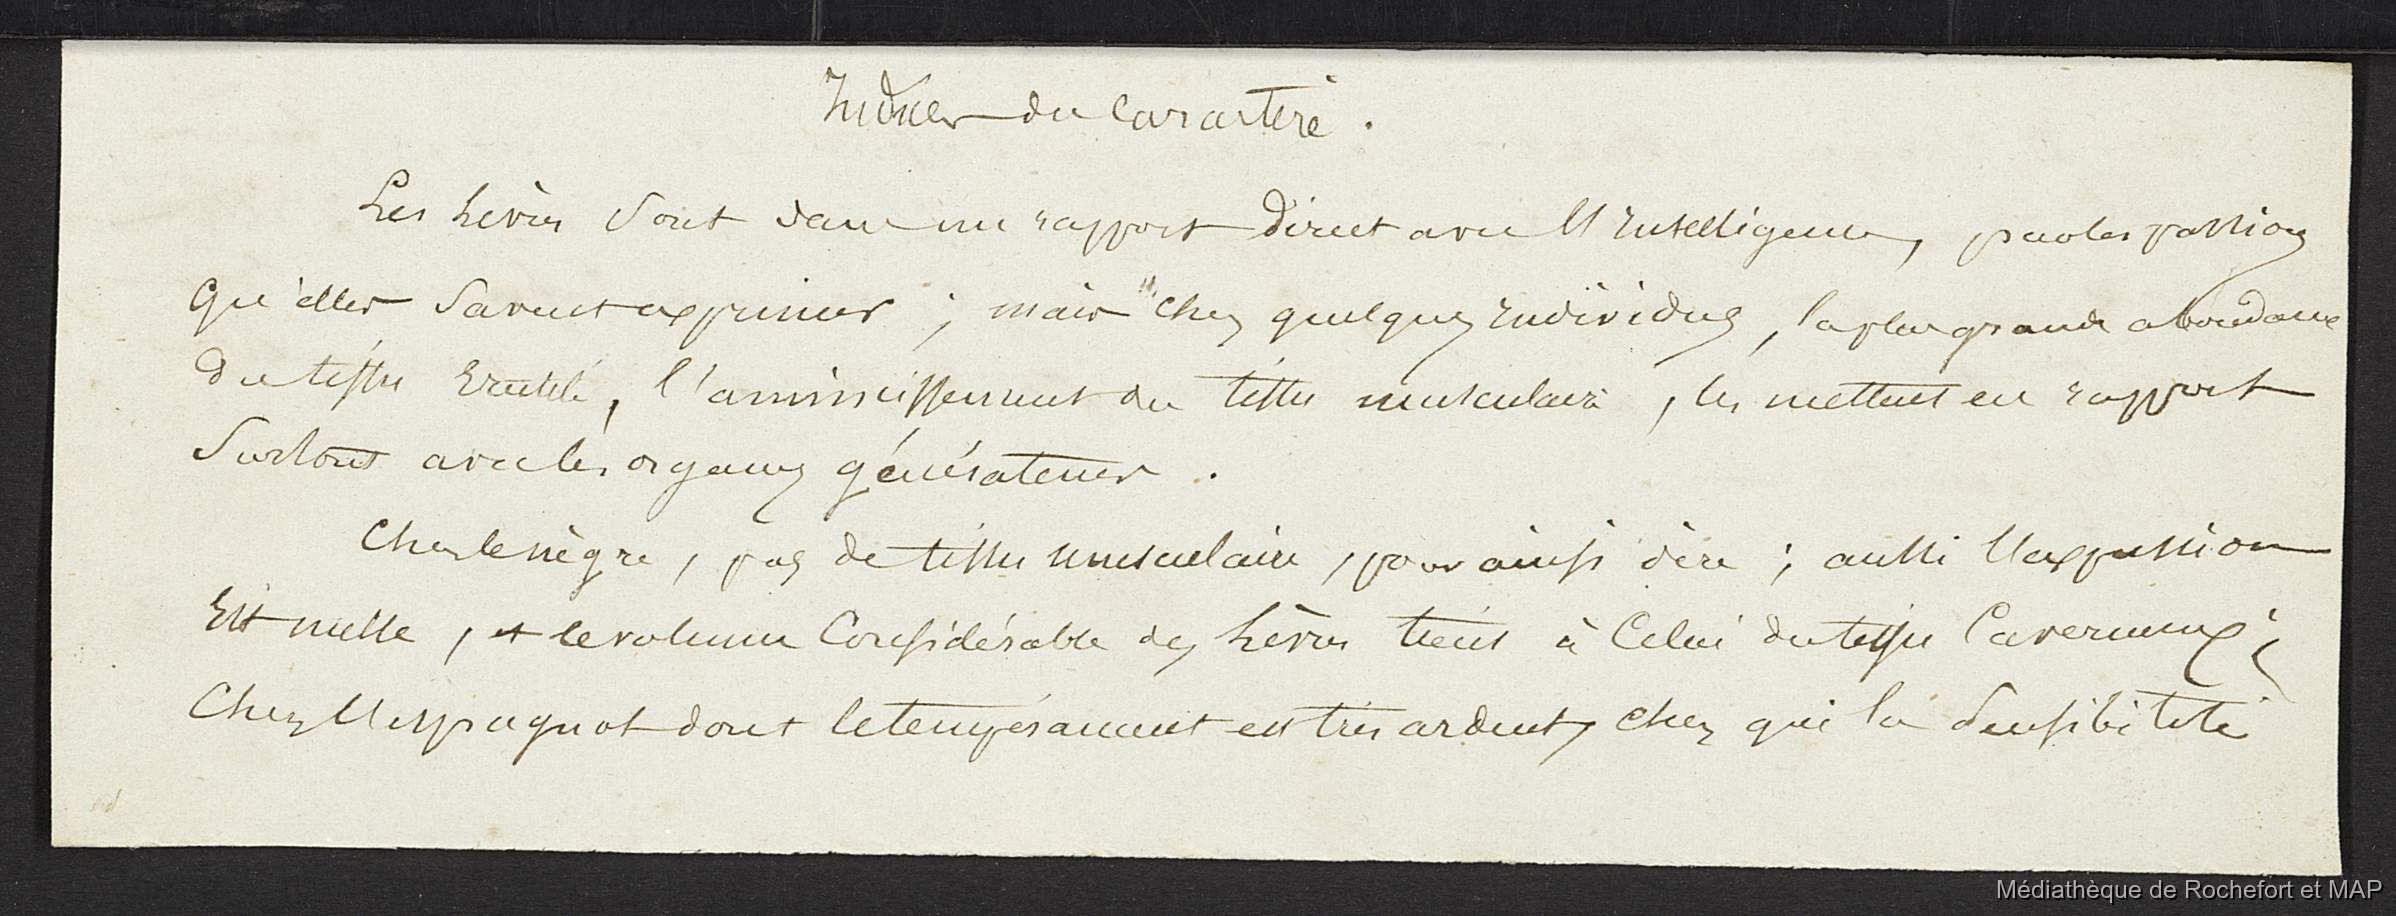 Indices du Caractère.
Les Lèvres Sont dans un rapport Direct avec L'Intelligence, par les passions
Qu'elles Savent exprimer ; mais chez quelques individus, la plus grande abondance
Du tissu Erectile, l'amincissement du tissu musculaire, les mettent en rapport
Surtout avec les organes générateurs.
Chez le nègre, pas de tissu musculaire, pour ainsi dire ; aussi L'expression
Est nulle, et le volume Considérable des Lèvres tient à Celui du tissu Caverneux ;
Chez L'espagnol dont le tempérament est très ardent, chez qui la Sensibilité
Médiathèque de Rochefort et MAP